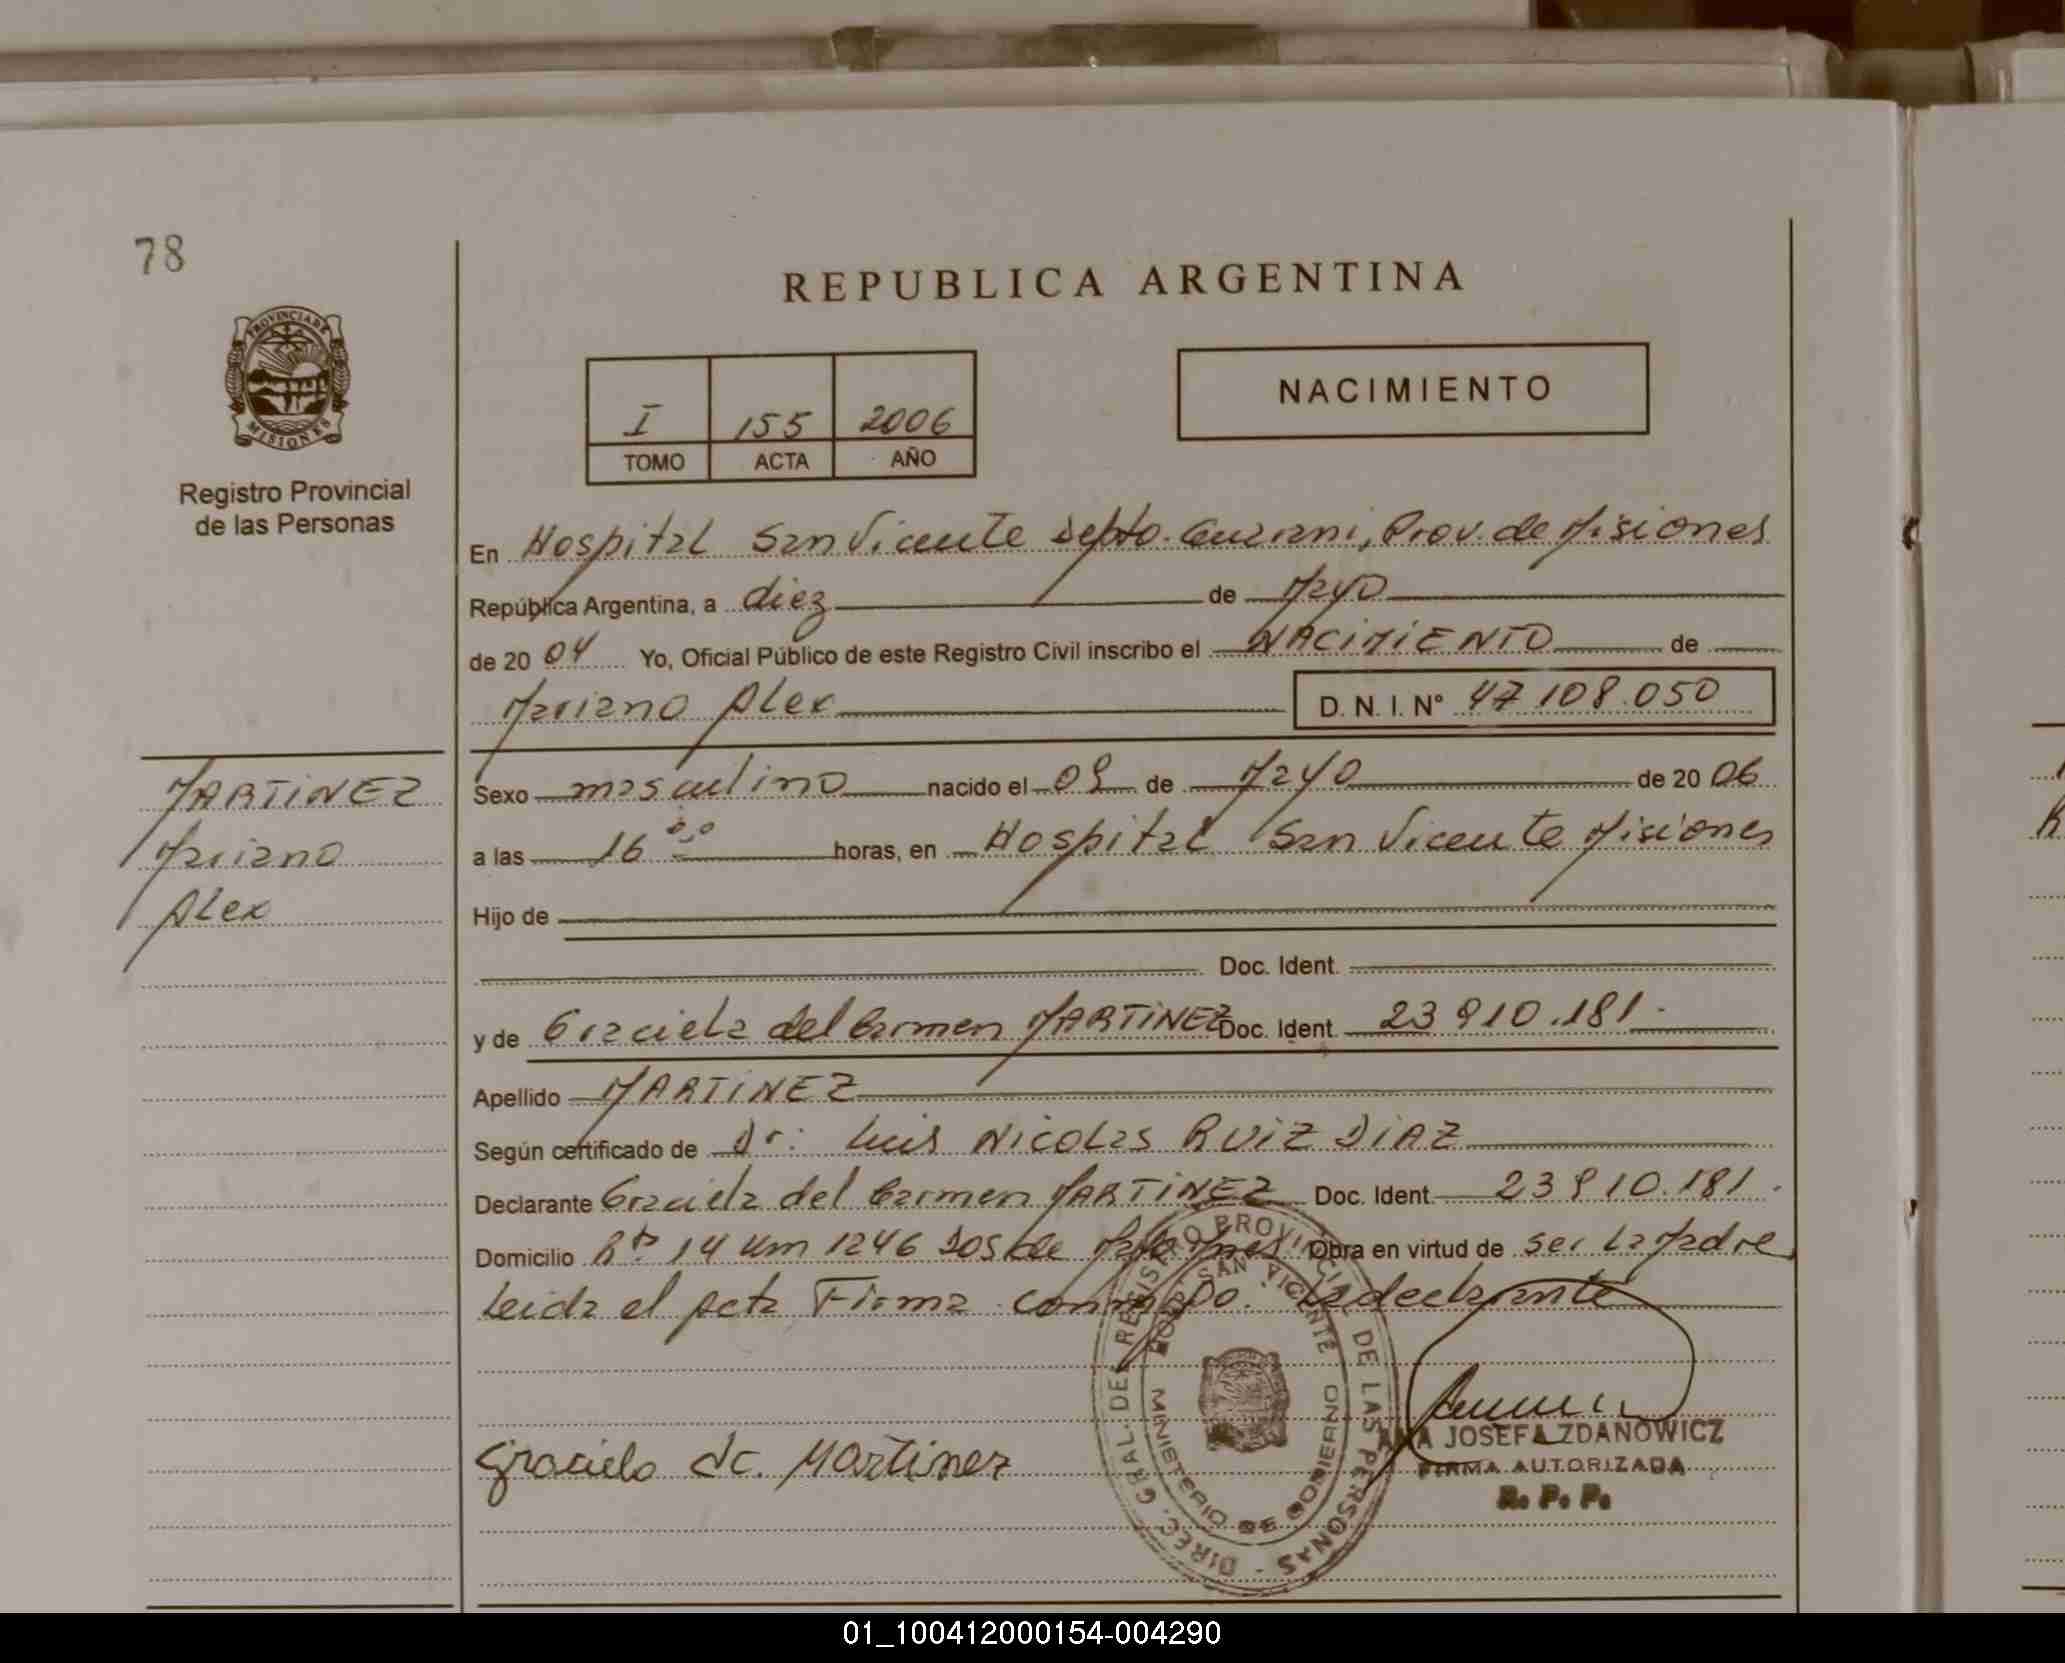 78
REPUBLICA ARGENTINA
PROVINCIA DE
MISIONES
Registro Provincial
de las Personas
I 155 2006
TOMO ACTA AÑO
NACIMIENTO
En Hospital San Vicente Depto. Guarani, Prov. de Misiones
República Argentina, a diez de Mayo
de 20 04 Yo, Oficial Público de este Registro Civil inscribo el NACIMIENTO de
Mariano Alex D. N. I. Nº 47 108.050
MARTINEZ
Mariano
Alex
Sexo masculino nacido el 09 de Mayo de 20 06
a las 16 00 horas, en Hospital San Vicente Misiones
Hijo de
Doc. Ident.
y de Graciela del Carmen MARTINEZ Doc. Ident. 23 910.181.
Apellido MARTINEZ
Según certificado de Dr: Luis Nicolas RUIZ DIAZ
Declarante Graciela del Carmen MARTINEZ Doc. Ident. 23 910.181.
Domicilio Rta 14 Km 1246 DOS de Mayo Mnes Obra en virtud de ser la Madre
Leida el acta Firma conmigo. La declarante
Graciela dc. Martinez
DIREC. GRAL. DEL REGISTRO PROVINCIAL DE LAS PERSONAS -
HOSP. SAN VICENTE
MINISTERIO DE GOBIERNO
ANA JOSEFA ZDANOWICZ
FIRMA AUTORIZADA
R. P. P.
01_100412000154-004290